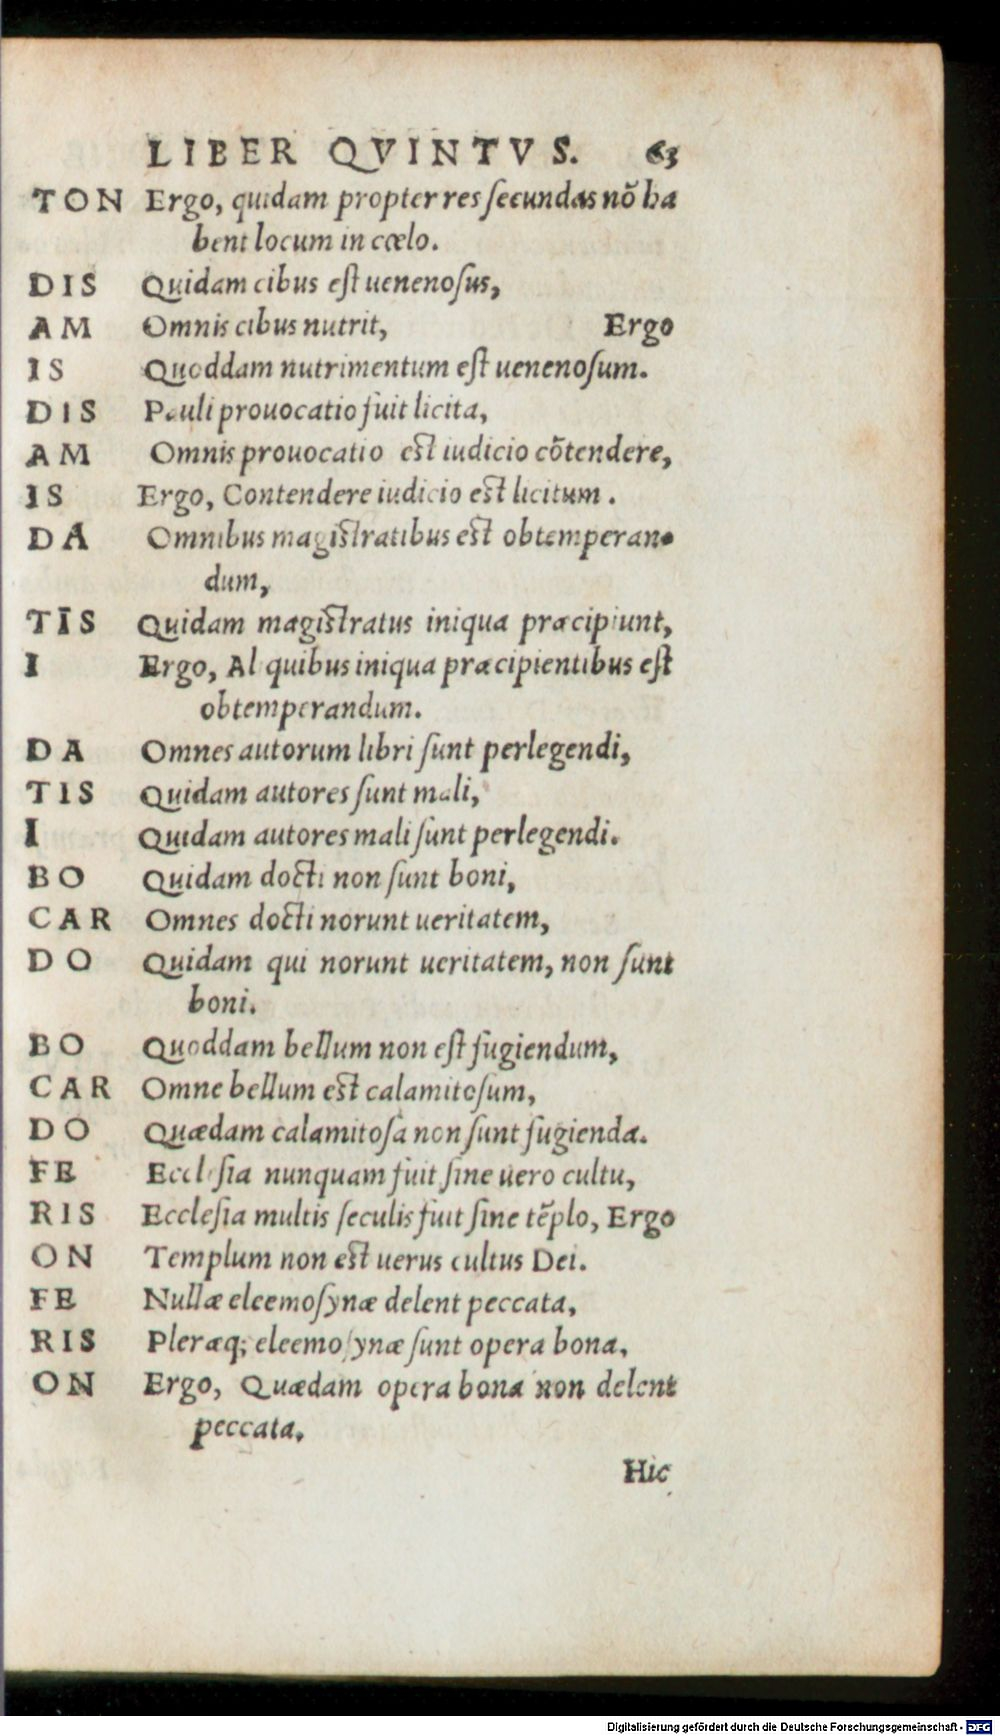 LIBER QVINTVS. 63
TON Ergo, quidam propter res ſecundas nõ ha
bent locum in cœlo.
DIS Quidam cibus eſt uenenoſus,
AM Omnis cibus nutrit, Ergo
IS Quoddam nutrimentum eſt uenenoſum.
DIS Pauli prouocatio fuit licita,
AM Omnis prouocatio eſt iudicio cõtendere,
IS Ergo, Contendere iudicio eſt licitum.
DA Omnibus magiſtratibus eſt obtemperan-
dum,
TIS Quidam magiſtratus iniqua præcipiunt,
I Ergo, Al quibus iniqua præcipientibus eſt
obtemperandum.
DA Omnes autorum libri ſunt perlegendi,
TIS Quidam autores ſunt mali,
I Quidam autores mali ſunt perlegendi.
BO Quidam docti non ſunt boni,
CAR Omnes docti norunt ueritatem,
DO Quidam qui norunt ueritatem, non ſunt
boni.
BO Quoddam bellum non eſt fugiendum,
CAR Omne bellum eſt calamitoſum,
DO Quædam calamitoſa non ſunt fugienda.
FE Eccleſia nunquam fuit ſine uero cultu,
RIS Eccleſia multis ſeculis fuit ſine tẽplo, Ergo
ON Templum non eſt uerus cultus Dei.
FE Nullæ eleemoſynæ delent peccata,
RIS Pleræq; eleemoſynæ ſunt opera bona,
ON Ergo, Quædam opera bona non delent
peccata.
Hic
Digitalisierung gefördert durch die Deutsche Forschungsgemeinschaft - DFG